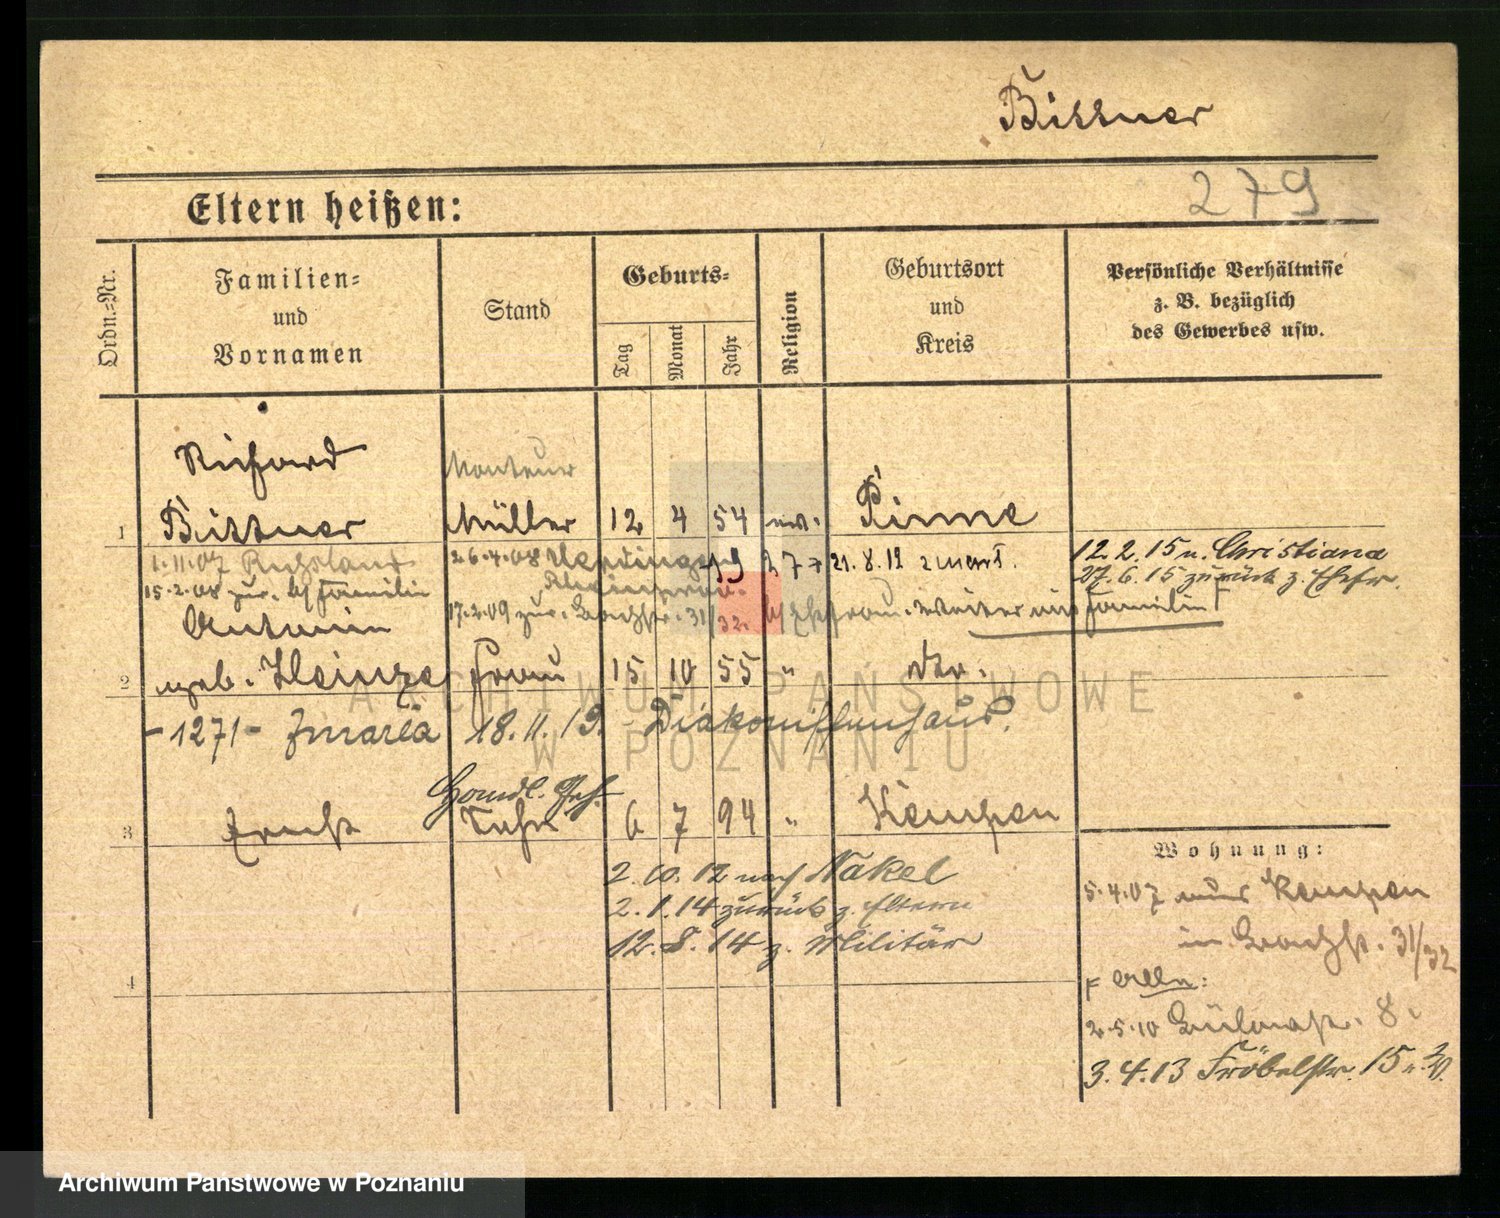 Bittner
279
Eltern heißen:
Ordn.=Nr.
Familien=
und
Vornamen
Stand
Geburts=
Tag
Monat
Jahr
Religion
Geburtsort
und
Kreis
Persönliche Verhältnisse
z. B. bezüglich
des Gewerbes usw.
Richard
Monteur
1 Bittner Müller 12 4 54 ev. Pinne
1.11.07 Russland 26.4.08 19 277 21.8.12
12.2.15 n. Christiana
15.2.08 zur. Familie
27.6.15 zurück z. Ehefr.
17.2.09 zur. 31/32. Ehefrau. Familie
2 geb. Heinze Frau 15 10 55 "
-1271- 18.11.19. Diakonissenhaus.
Handl. Geh.
3 Ernst Sohn 6 7 94 " Kempen
2.10.12 nach Nakel
2.1.14 zurück z. Eltern
12.8.14 z. Militär
4
Wohnung:
5.4.07 aus Kempen
in 31/32
2.5.10 8
3.4.13 Fröbelstr. 15
ARCHIWUM PAŃSTWOWE
W POZNANIU
Archiwum Państwowe w Poznaniu